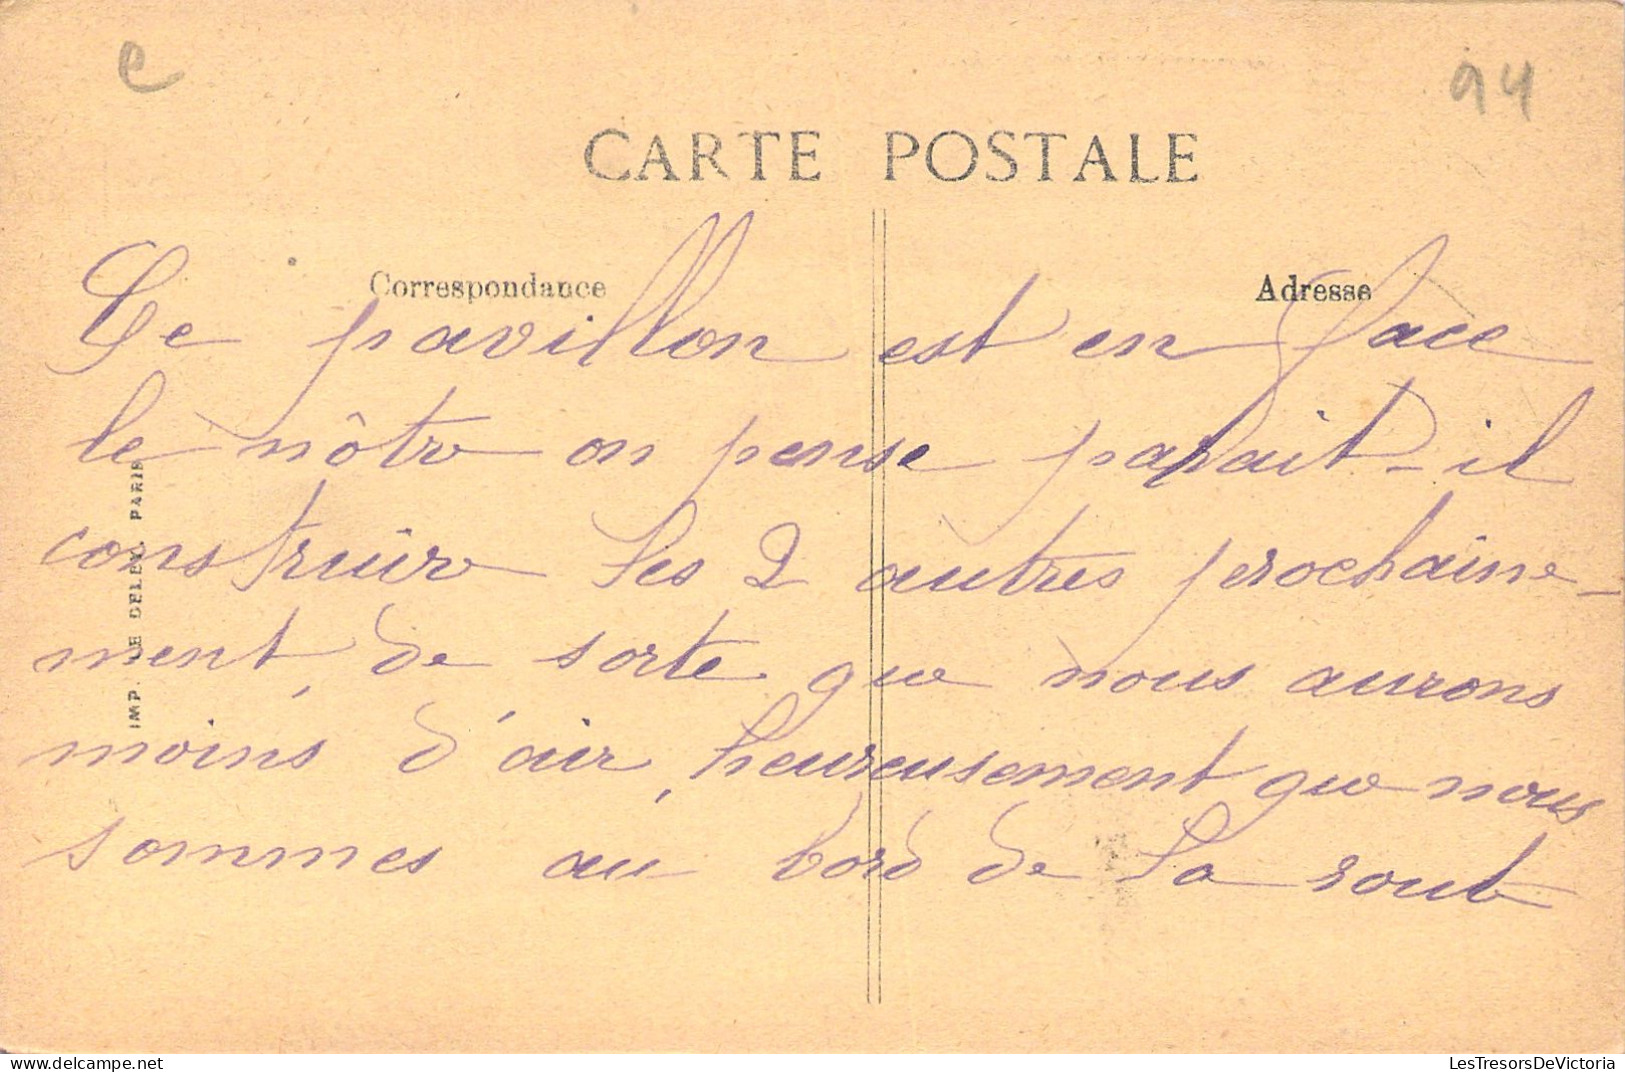 e
94
CARTE POSTALE
Correspondance
Adresse
Ce pavillon est en face
le nôtre on pense parait-il
construire les 2 autres prochaine-
ment, de sorte que nous aurons
moins d'air, heureusement que nous
sommes au bord de la route
IMP. LE DELEY, PARIS
LesTresorsDeVictoria
delcampe.net